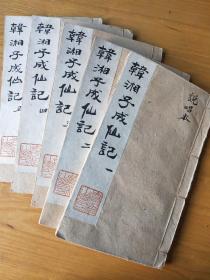 韓湘子成仙記 一
說唱本
韓湘子成仙記 二
韓湘子成仙記 三
韓湘子成仙記 四
韓湘子成仙記 五